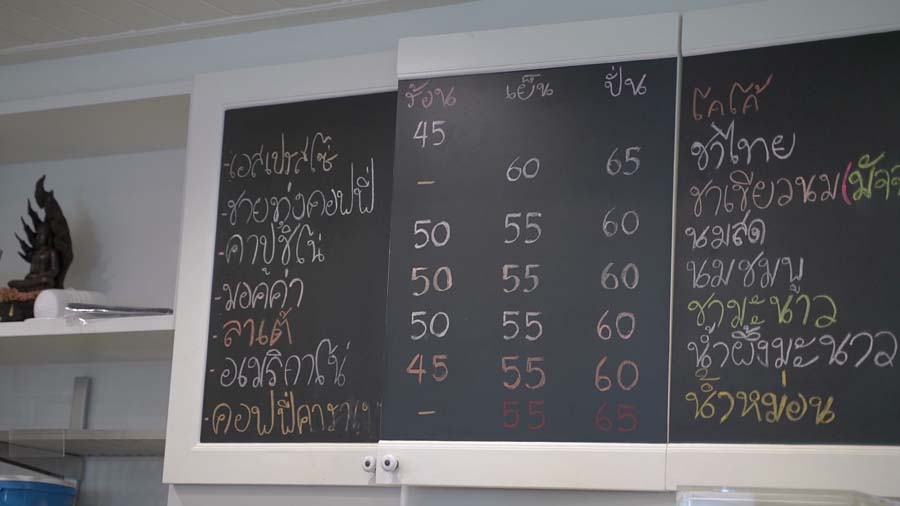 -เอสเปรสโซ่
-ชายทุ่งคอฟฟี่
-คาปูชิโน่
-มอคค่า
-ลาเต้
-อเมริกาโน่
-คอฟฟี่คาราเมล
ร้อน เย็น ปั่น
45
60 65
-
50 55 60
50 55 60
50 55 60
45 55 60
- 55 65
โคโค้
ชาไทย
ชาเขียวนม(มัจ
นมสด
นมชมพู
ชามะนาว
น้ำผึ้งมะนาว
น้ำหม่อน